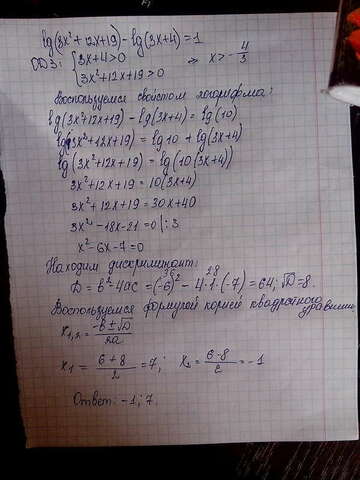 lg(3x²+12x+19)-lg(3x+4)=1
ОДЗ: {3x+4>0
{3x²+12x+19>0 ⇒ x>-4/3
Воспользуемся свойством логарифма:
lg(3x²+12x+19)-lg(3x+4)=lg(10)
lg(3x²+12x+19)=lg10+lg(3x+4)
lg(3x²+12x+19)=lg(10(3x+4))
3x²+12x+19=10(3x+4)
3x²+12x+19=30x+40
3x²-18x-21=0 |:3
x²-6x-7=0
Находим дискриминант:
D=b²-4ac=(-6)²-4·1·(-7)=64; √D=8.
36 28
Воспользуемся формулой корней квадратного уравнения
x₁,₂=(-b±√D)/2a
x₁=(6+8)/2=7; x₂=(6-8)/2=-1
Ответ: -1; 7.